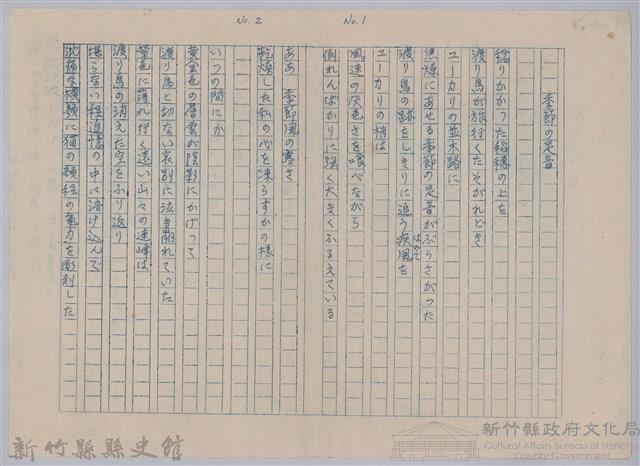 No.1
季節の足音
稔りかかつた稲穂の上を
渡り鳥が旅行くたそがれどき
ユーカリの並木路に
焦燥にあせる季節の足音がぶらさがつた
渡り鳥の跡をしきりに追う疾風を
はやて
ユーカリの梢は
風速の灰色さを喰べながら
倒れんばかりに強く大きくふるえている
No.2
ああ 季節風の寒さ
乾燥した私の心を凍らすかの様に
いつの間にか
黄金色の層雲が陰影にかげつて
渡り鳥と切ない哀別に泣き崩れていた
螢色に薄れ行く遠い山々の連峰は
渡り鳥の消えた空をふり返り
堪らない程追憶の中に溶け込んで
沈痛な横顔に猫の額程の気力を彫刻した
新竹縣縣史館
新竹縣政府文化局
Cultural Affairs Bureau of Hsinchu
County Government